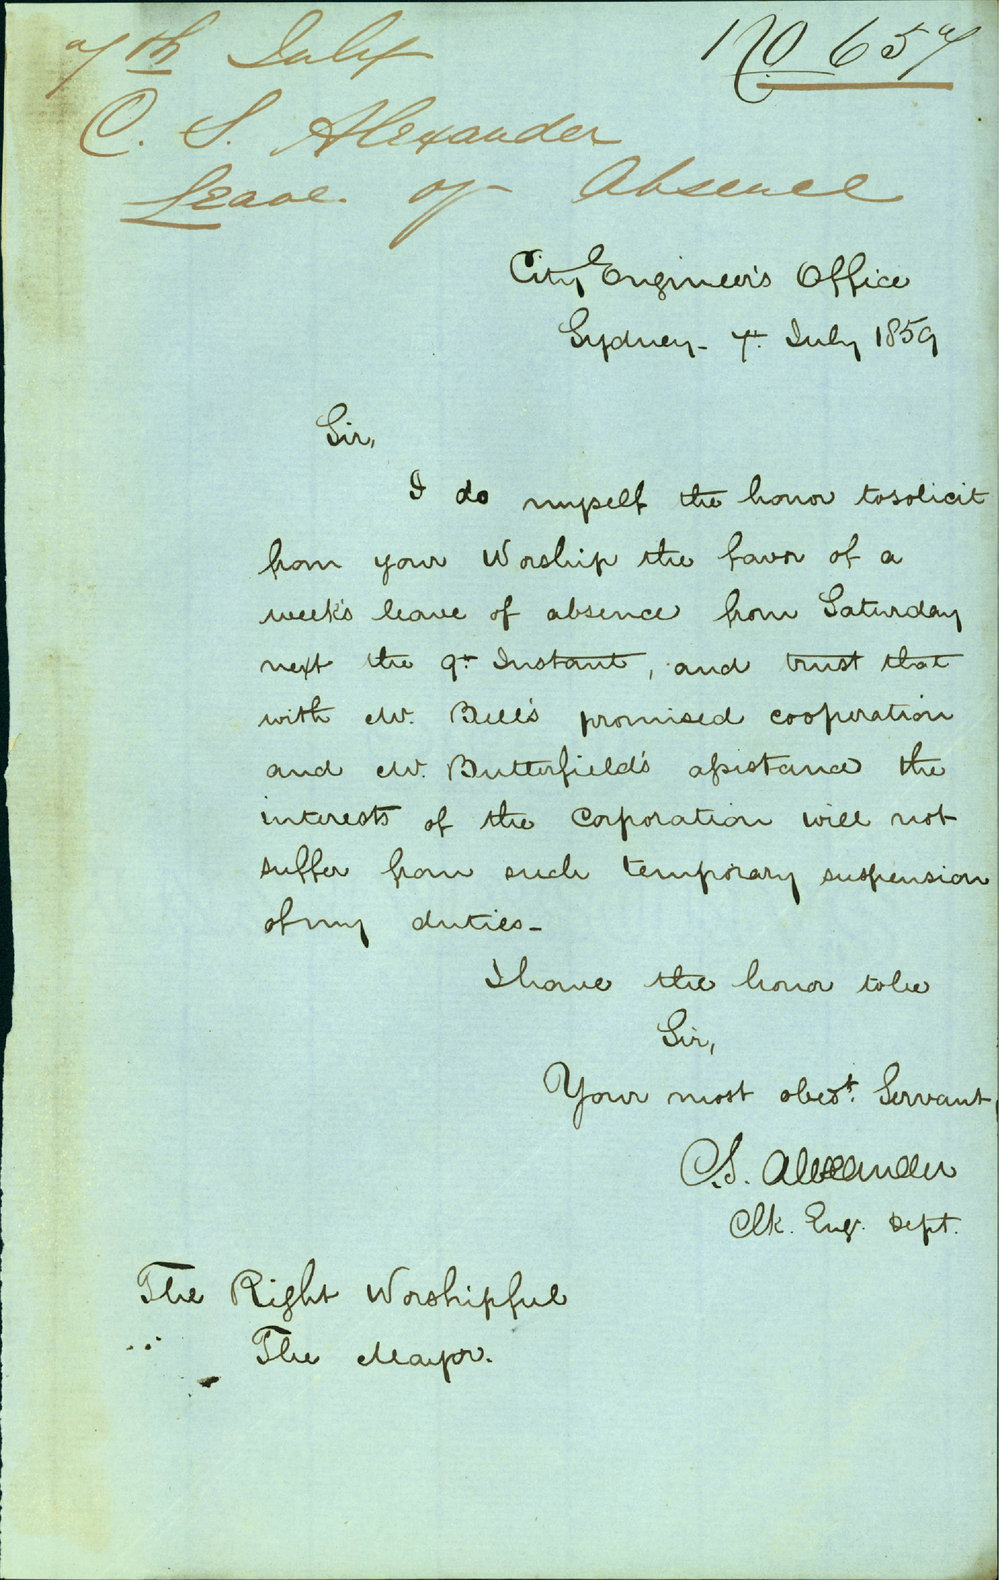 7th July
No 657
C. S. Alexander
Leave of Absence
City Engineer's Office
Sydney - 7th July 1859
Sir,
I do myself the honor to solicit
from your Worship the favor of a
week's leave of absence from Saturday
next the 9th Instant, and trust that
with Mr. Bell's promised cooperation
and Mr. Butterfield's assistance the
interests of the Corporation will not
suffer from such temporary suspension
of my duties -
I have the honor to be
Sir,
Your most obedt. Servant
C.S. Alexander
Clk. Engr. Dept.
The Right Worshipful
The Mayor.